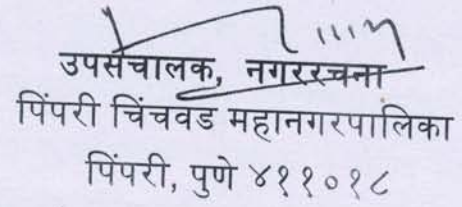 उपसंचालक, नगररचना
पिंपरी चिंचवड महानगरपालिका
पिंपरी, पुणे ४११०१८